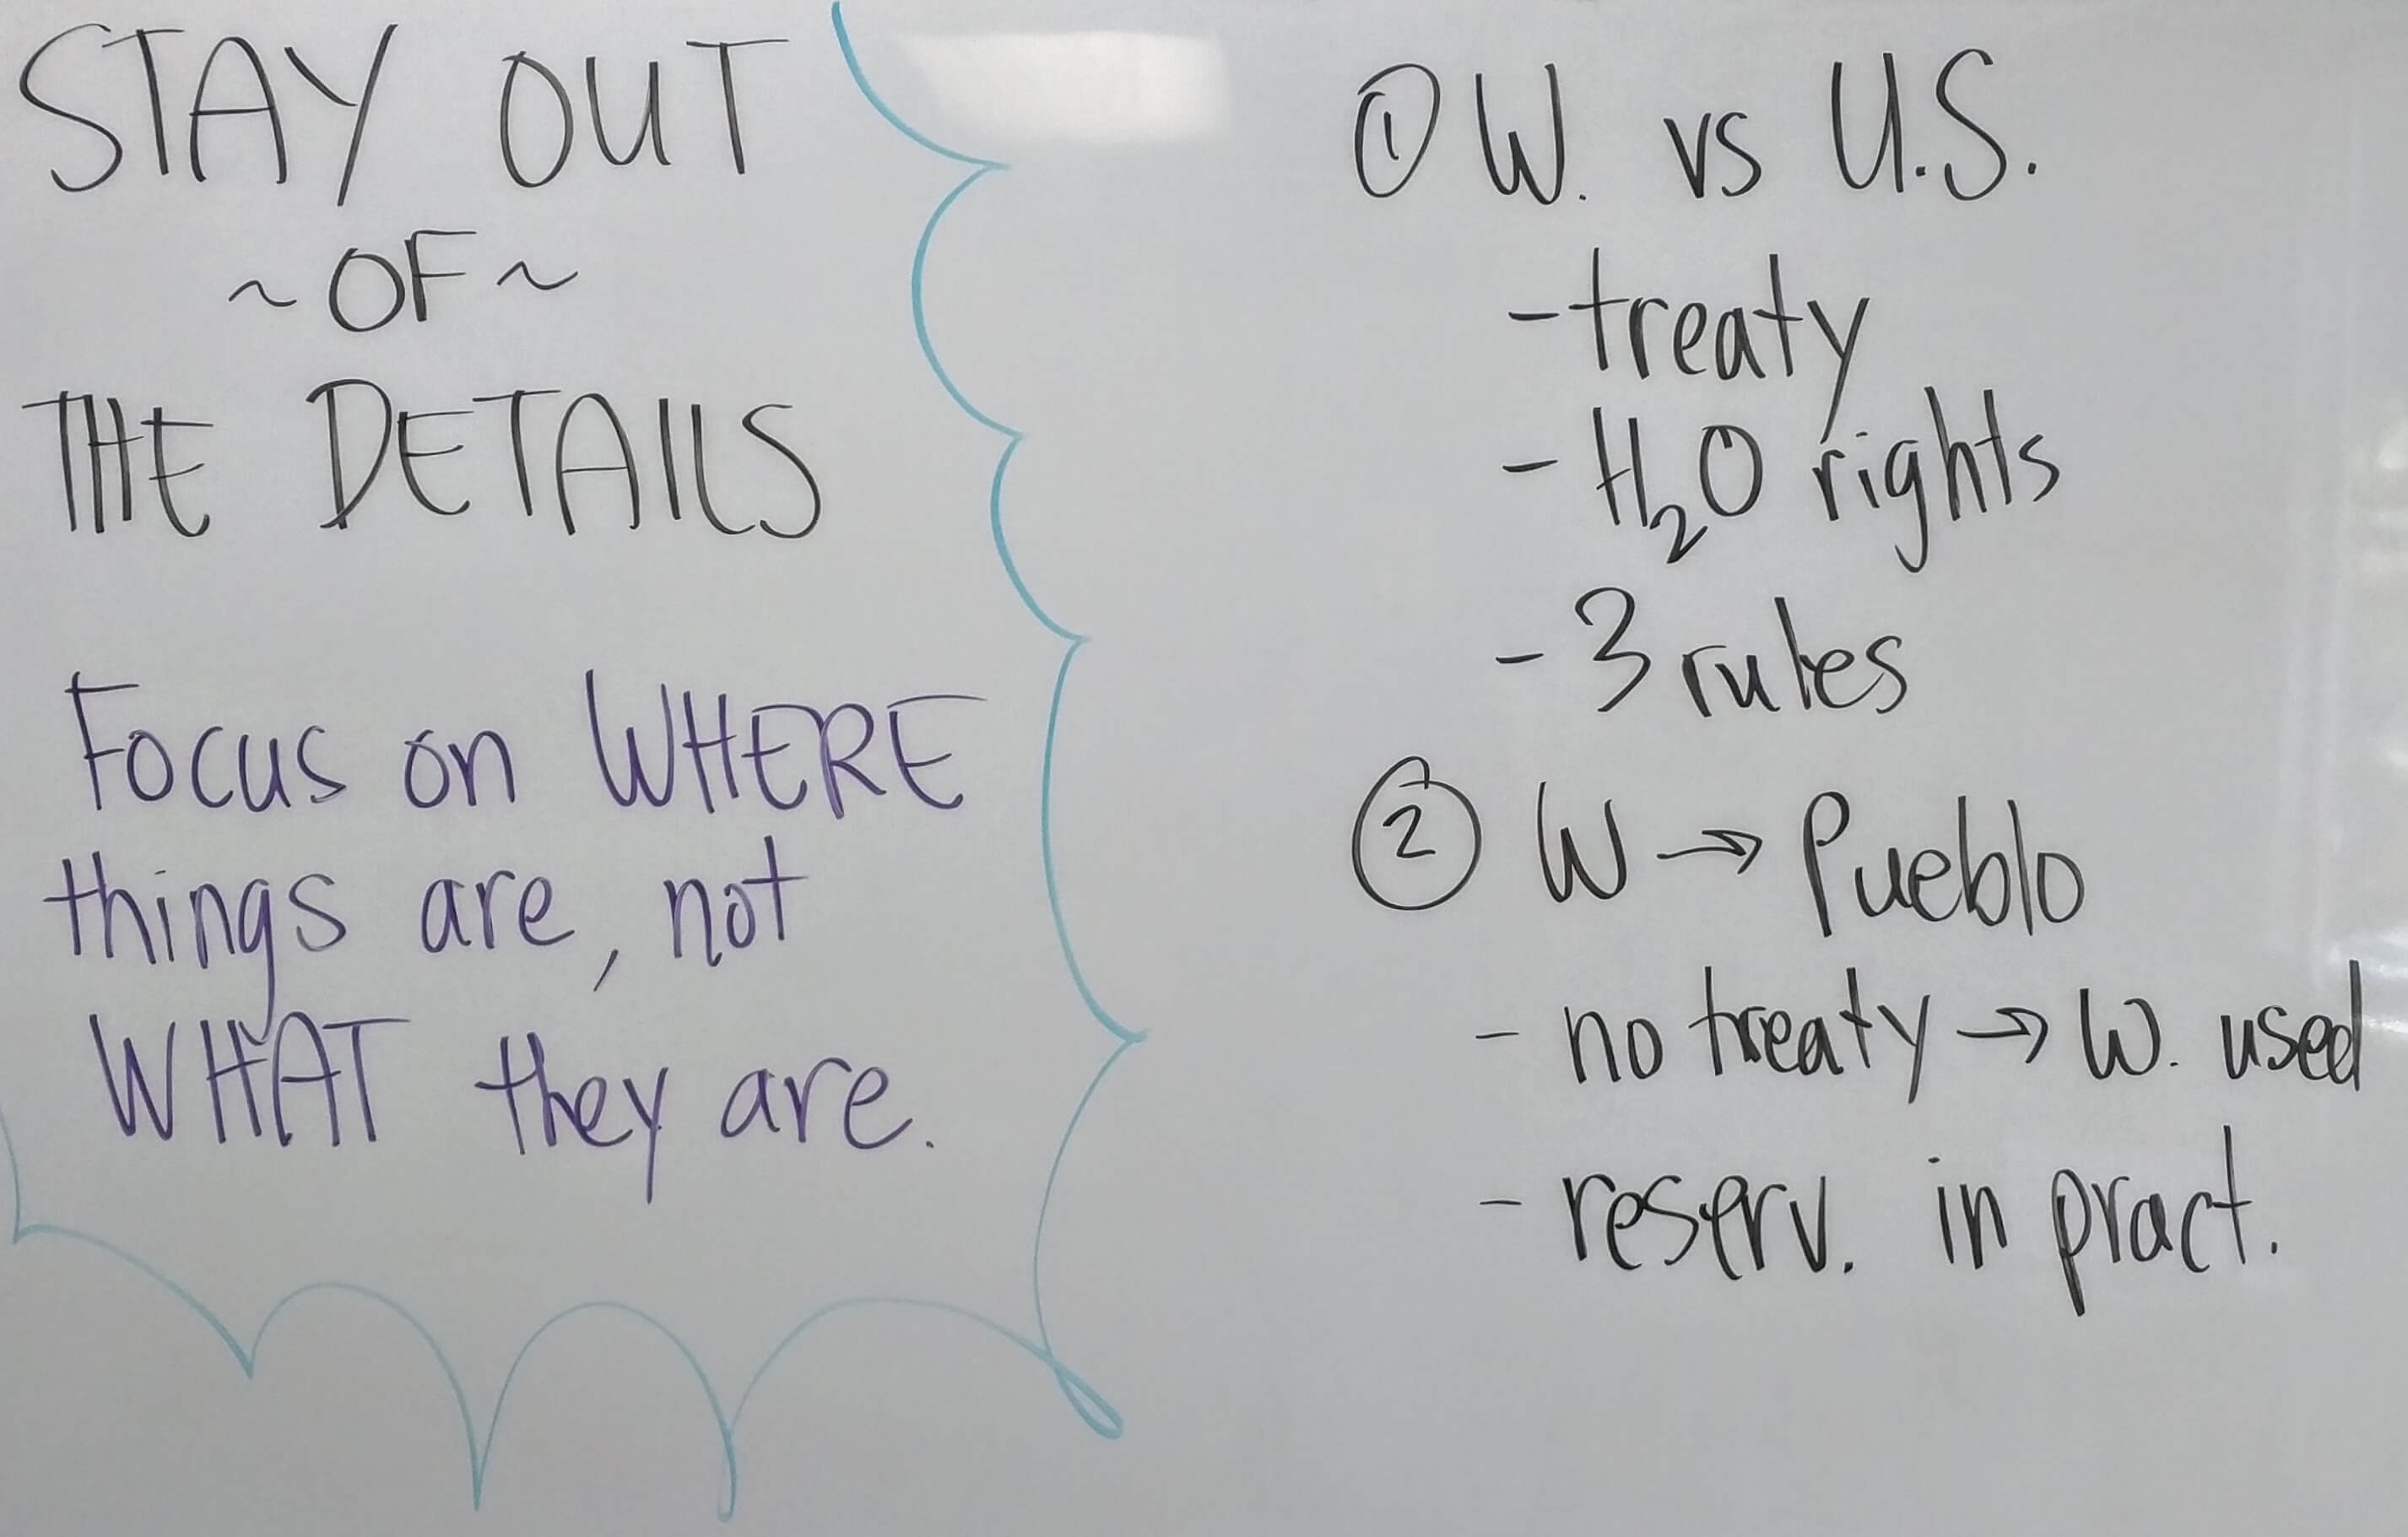 STAY OUT
~OF~
THE DETAILS
Focus on WHERE
things are, not
WHAT they are.
① W. vs U.S.
- treaty
- H₂O rights
- 3 rules
② W → Pueblo
- no treaty → W. used
- reserv. in pract.